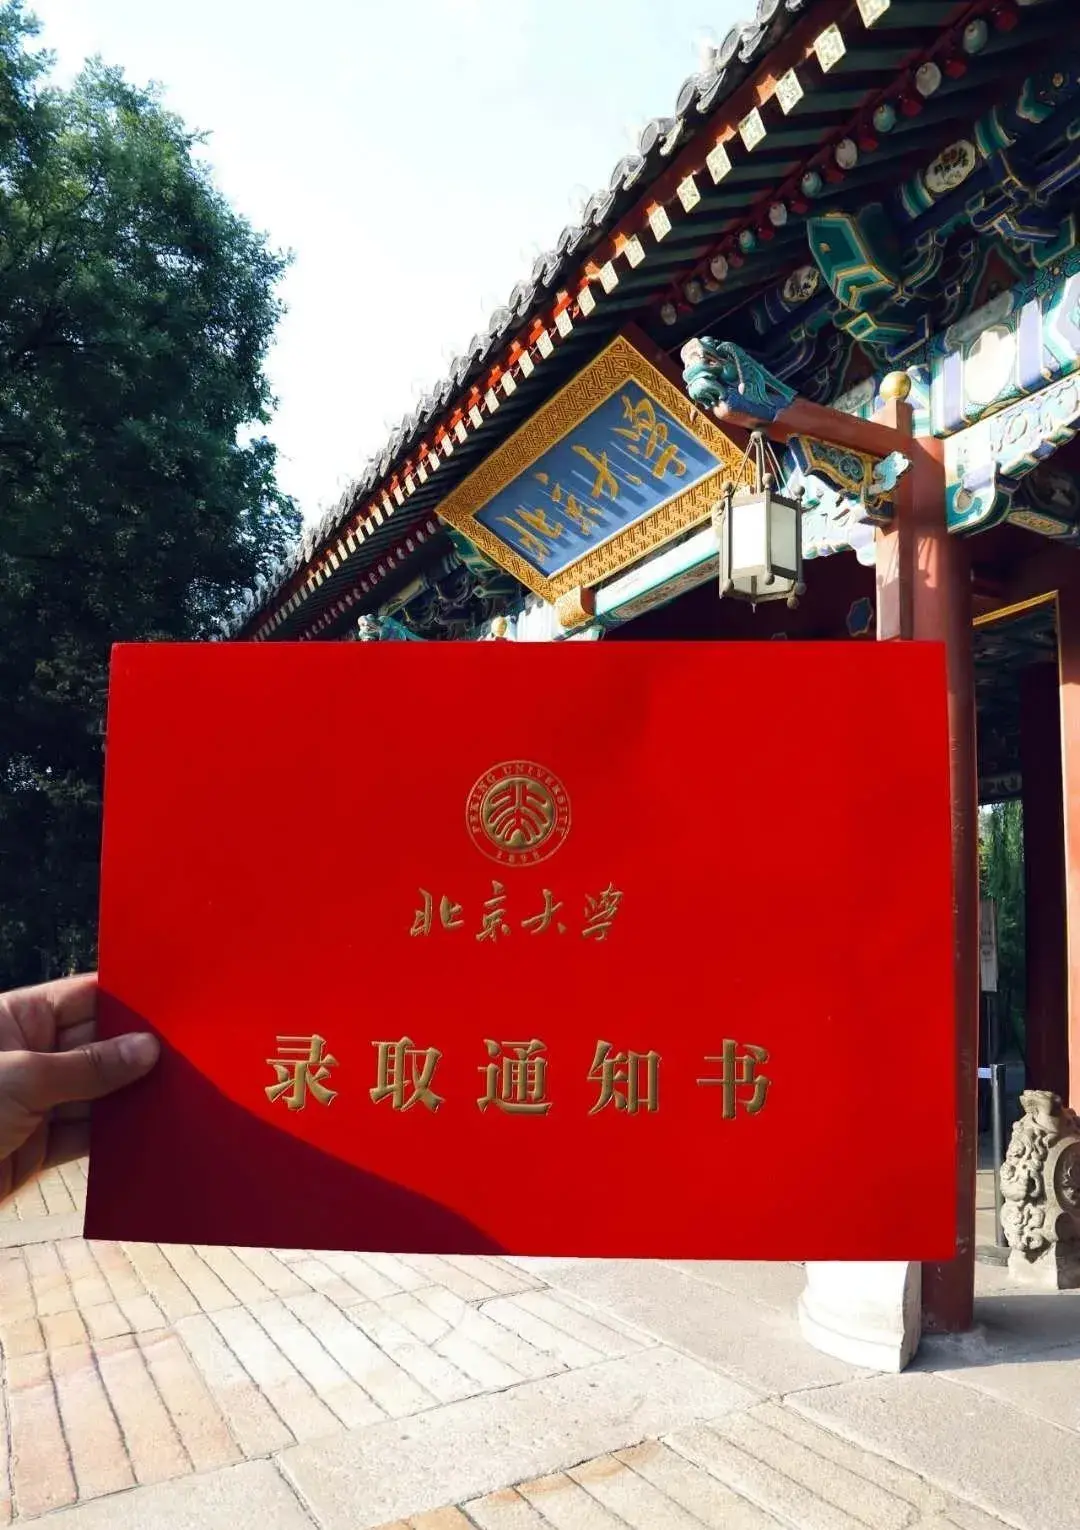 北京大学
PEKING UNIVERSITY
1898
北京大学
录取通知书